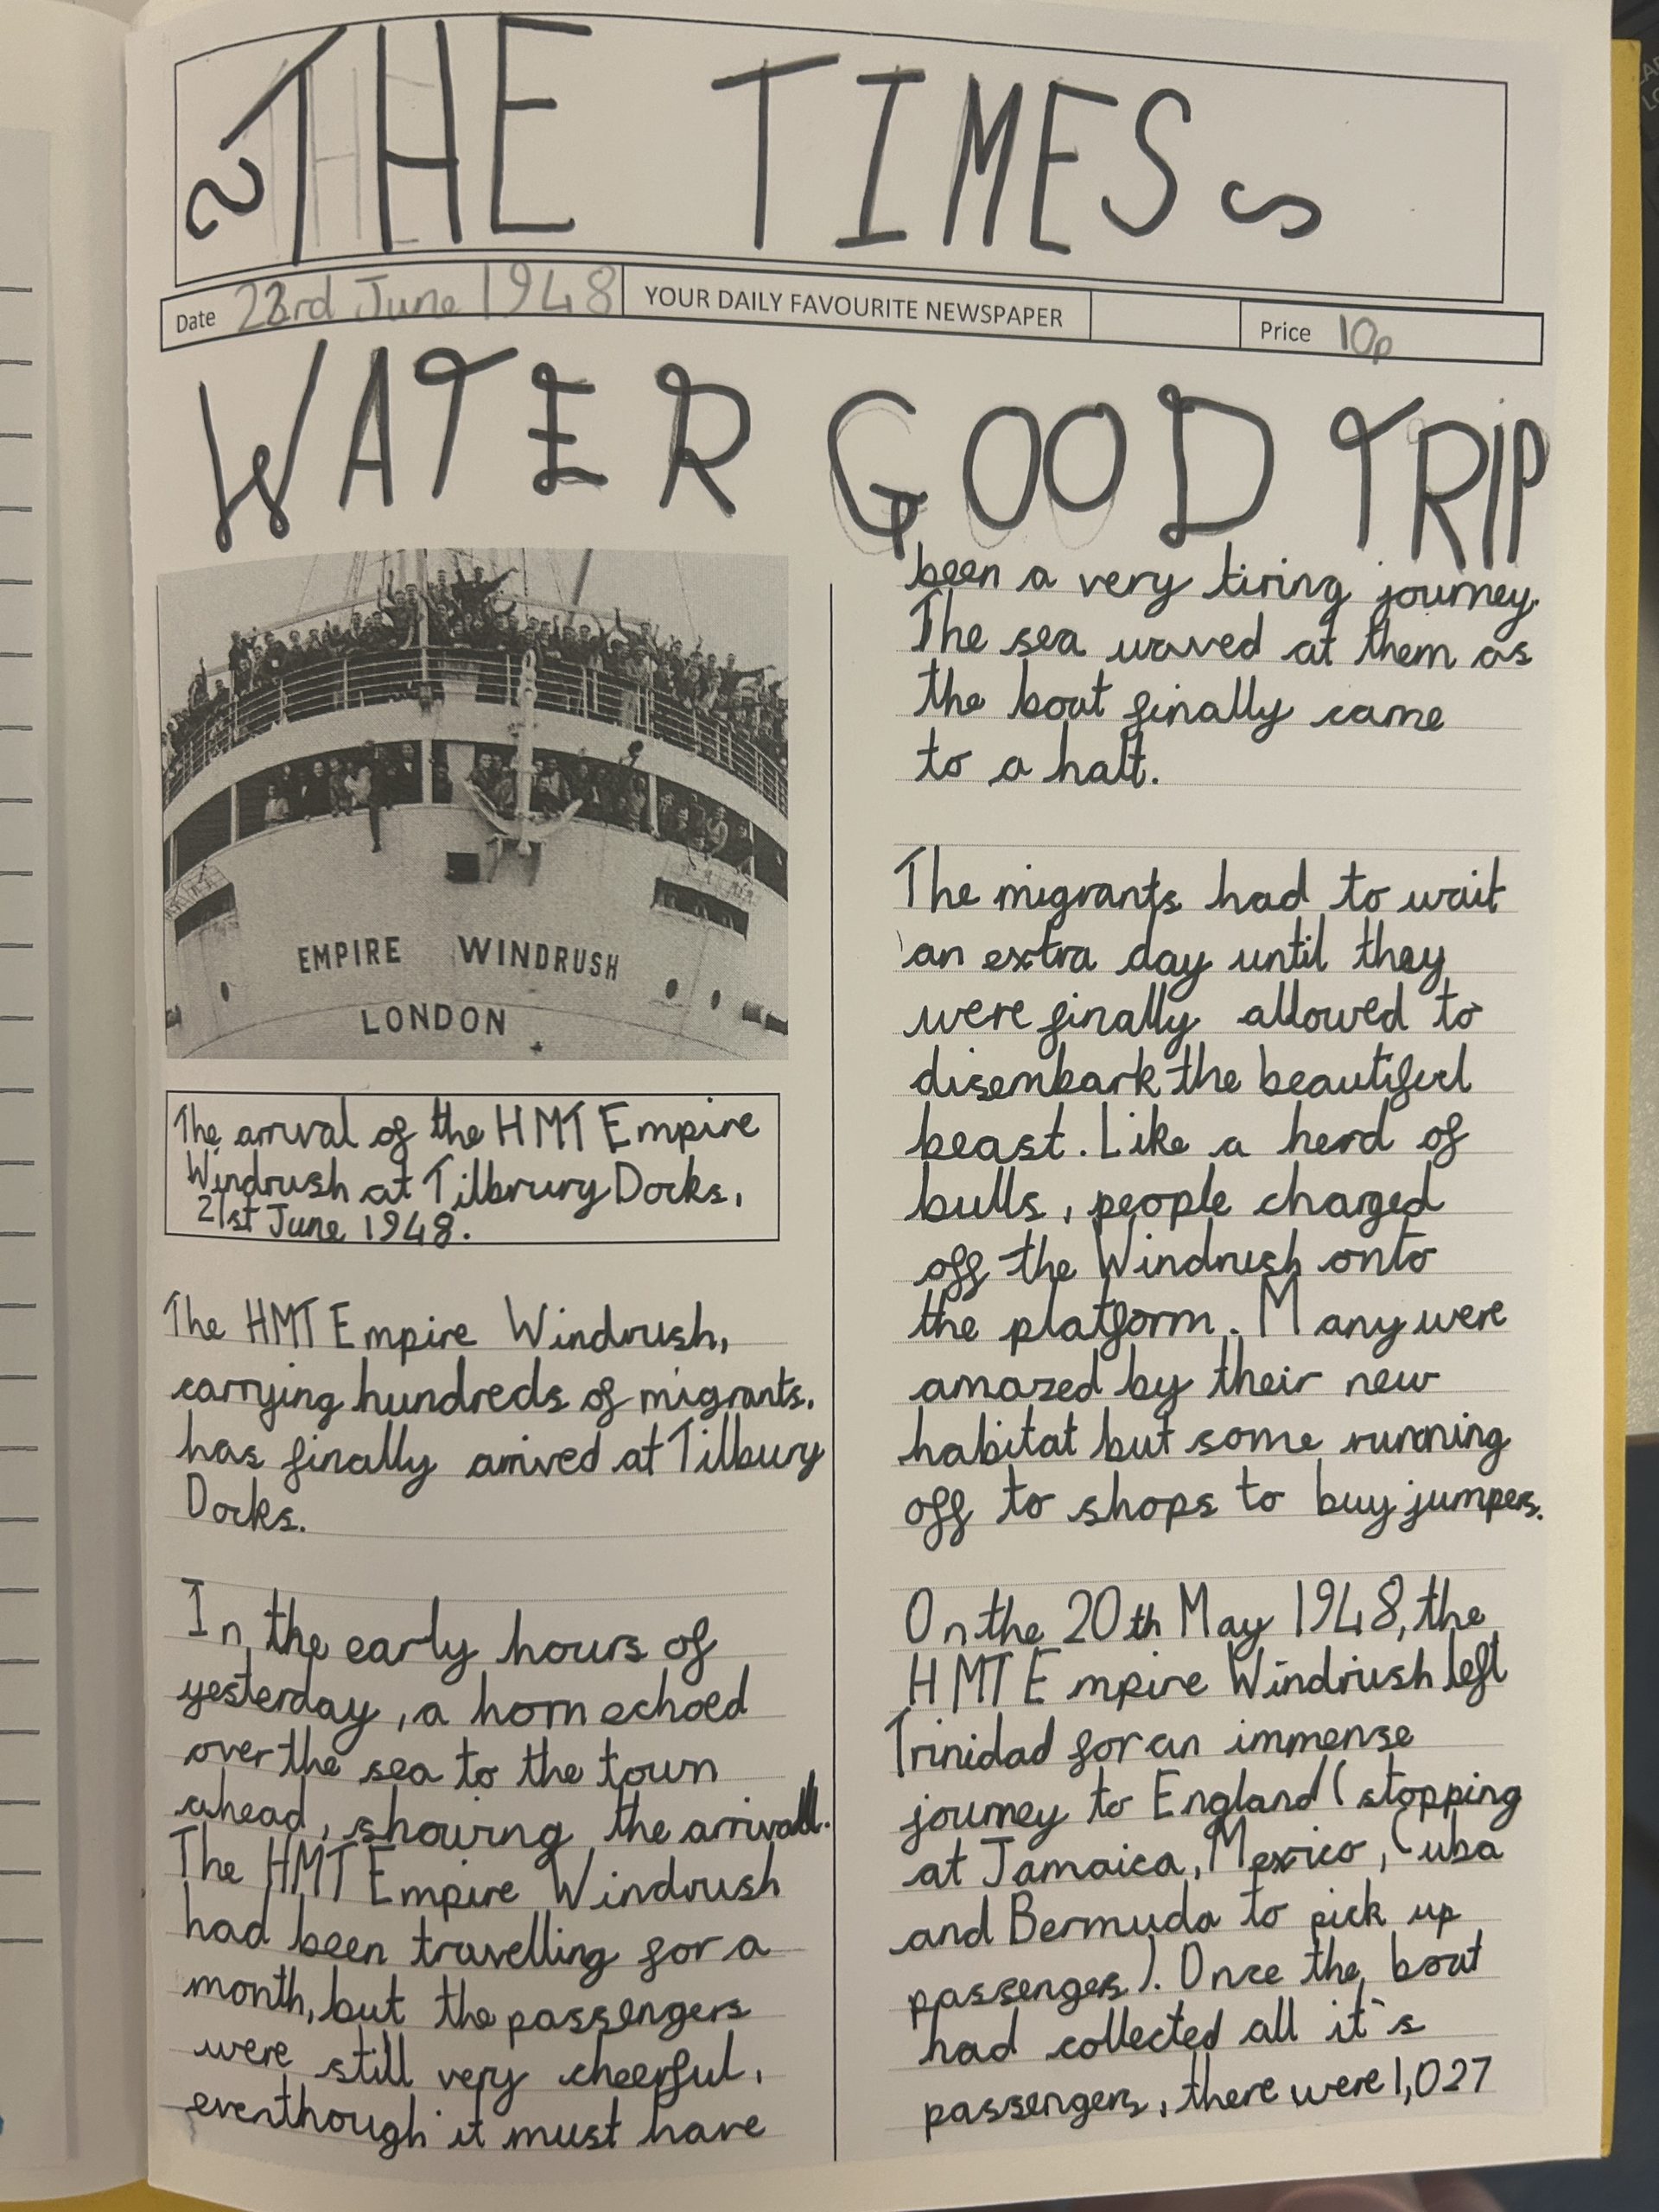 THE TIMES
Date 23rd June 1948 YOUR DAILY FAVOURITE NEWSPAPER Price 10p
WATER GOOD TRIP
EMPIRE WINDRUSH
LONDON
The arrival of the HMT Empire
Windrush at Tilbrury Docks,
21st June 1948.
The HMT Empire Windrush,
carrying hundreds of migrants,
has finally arrived at Tilbury
Docks.
In the early hours of
yesterday, a horn echoed
over the sea to the town
ahead, showing the arrival.
The HMT Empire Windrush
had been travelling for a
month, but the passengers
were still very cheerful,
eventhough it must have
been a very tiring journey.
The sea waved at them as
the boat finally came
to a halt.
The migrants had to wait
an extra day until they
were finally allowed to
disembark the beautiful
beast. Like a herd of
bulls, people charged
off the Windrush onto
the platform. Many were
amazed by their new
habitat but some running
off to shops to buy jumpers.
On the 20th May 1948, the
HMT Empire Windrush left
Trinidad for an immense
journey to England (stopping
at Jamaica, Mexico, Cuba
and Bermuda to pick up
passenges). Once the boat
had collected all it's
passengers, there were 1,027